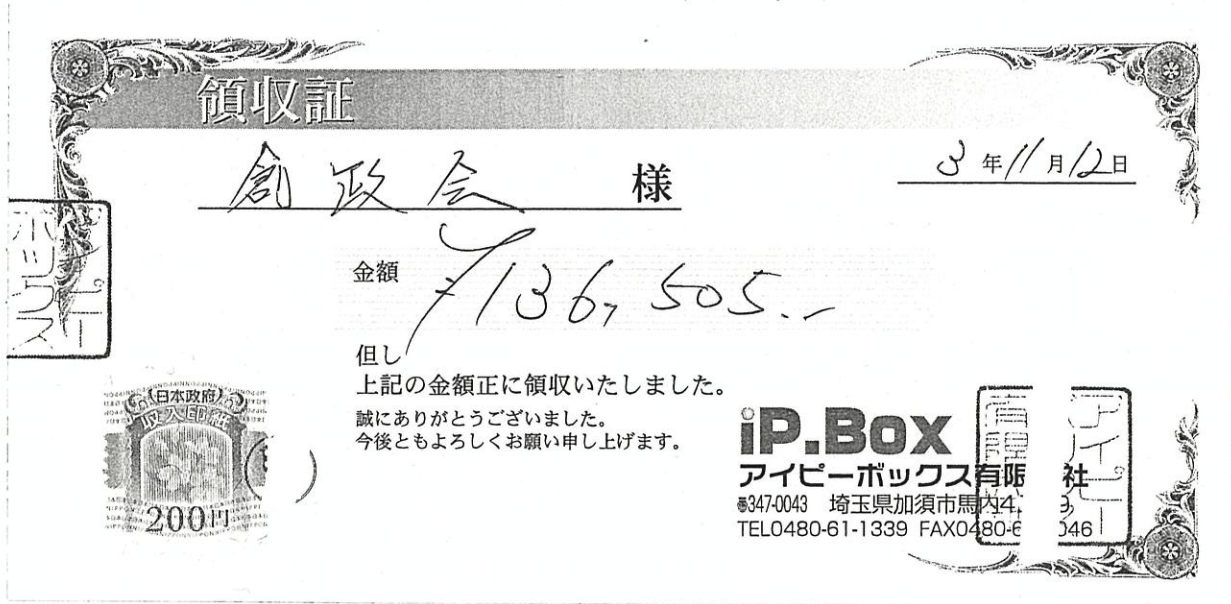 領収証
創政会 様
3年11月12日
金額 ¥136,505.-
但し
上記の金額正に領収いたしました。
誠にありがとうございました。
今後ともよろしくお願い申し上げます。
日本政府
収入印紙
200円
iP.Box
アイピーボックス有限 社
〒347-0043 埼玉県加須市馬内4
TEL0480-61-1339 FAX0480-6 046